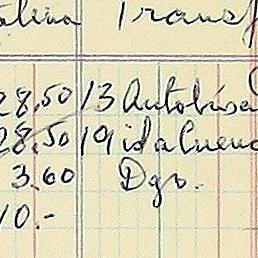 Transf
28,50 13 Autobúsa
28,50 19 ida Cuenc
3.60 Dgo.
10.-